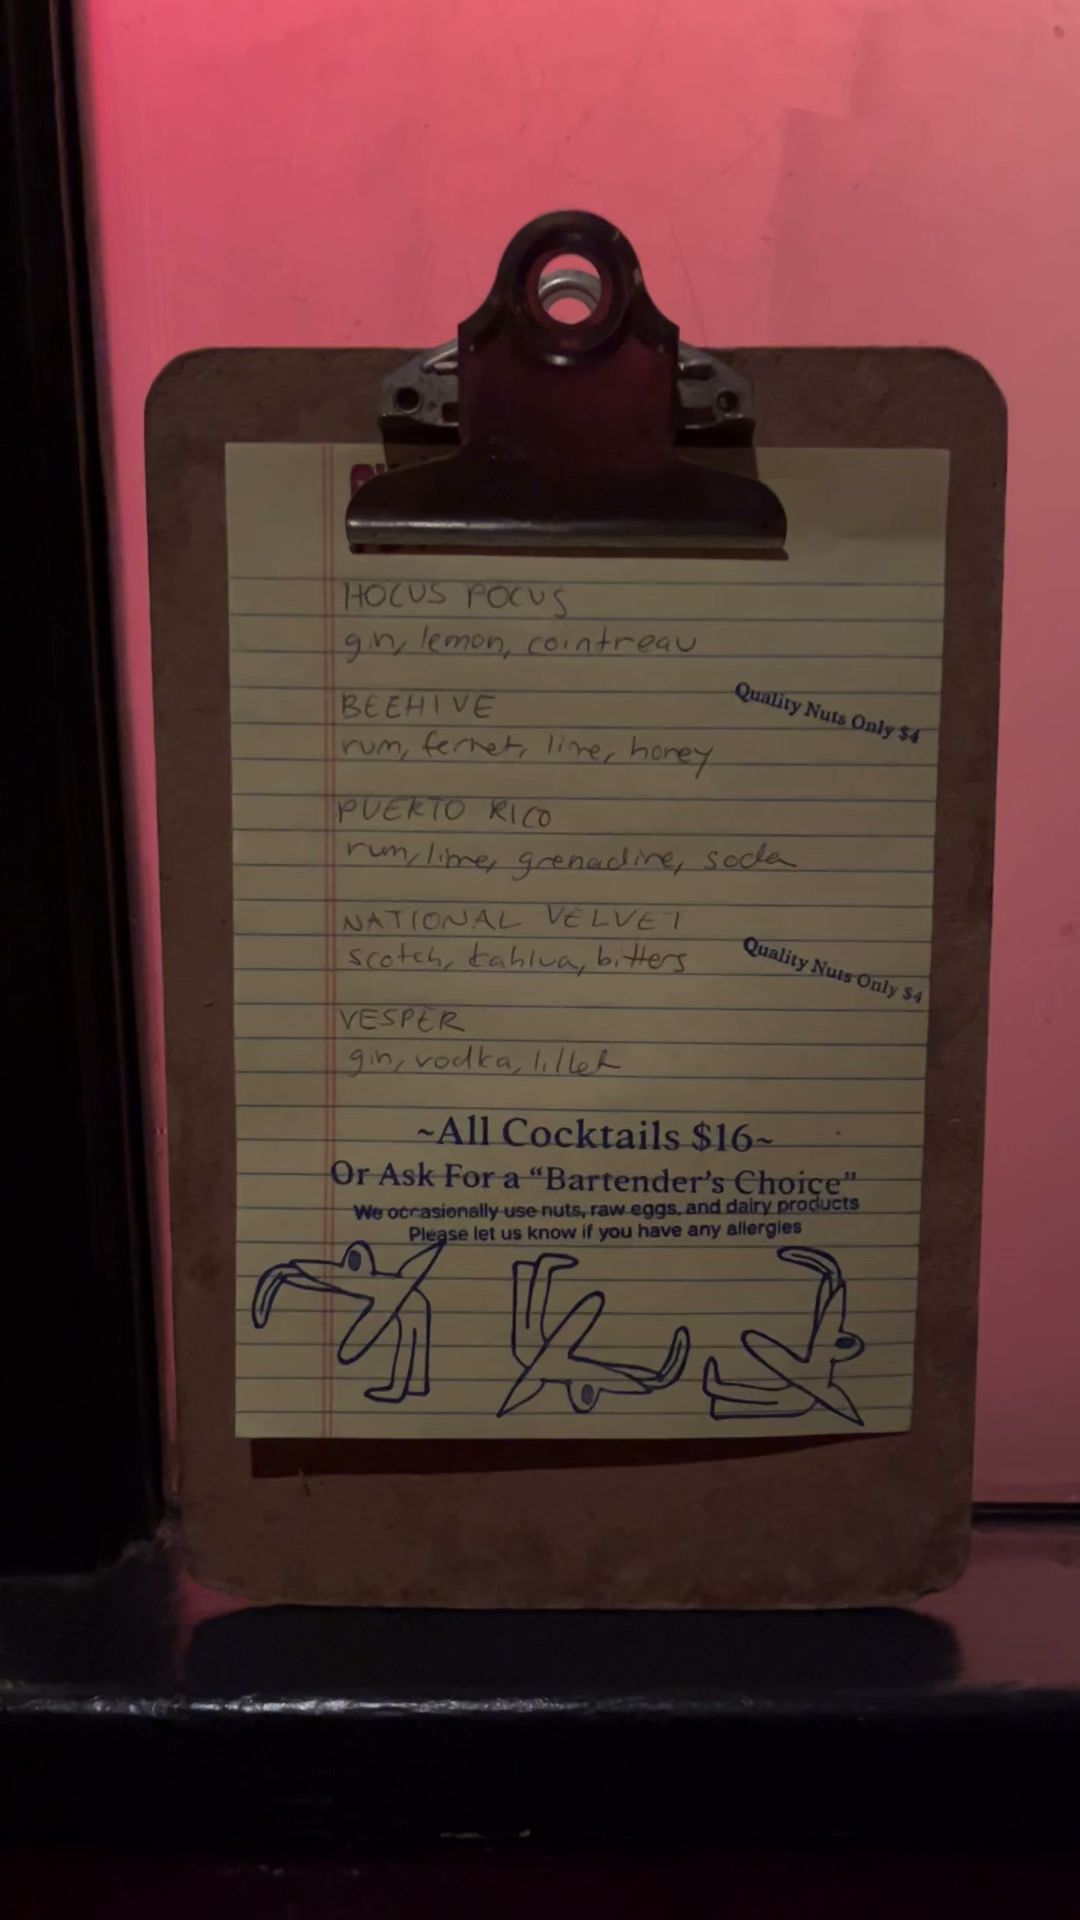 HOCUS POCUS
gin, lemon, cointreau
BEEHIVE
Quality Nuts Only $4
rum, fernet, lime, honey
PUERTO RICO
rum, lime, grenadine, soda
NATIONAL VELVET
Quality Nuts Only $4
scotch, kahlua, bitters
VESPER
gin, vodka, lillet
~All Cocktails $16~
Or Ask For a “Bartender's Choice”
We occasionally use nuts, raw eggs, and dairy products
Please let us know if you have any allergies